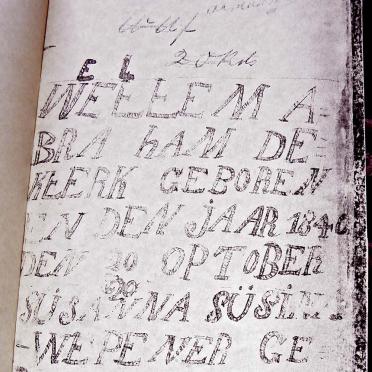 20
E L
WELLEM A-
BRA hAM DE
KLERK GEBOREN
EN DEN jAAR 1840
DEN 20 OPTOBER
20
SÜSANNA SÜSINA
WEPENER GE-